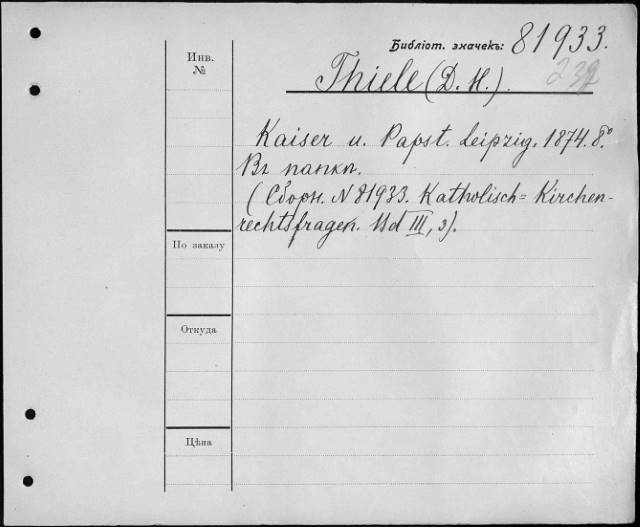 Библіот. значекъ: 81933.
Инв.
№
Thiele (D. H.).
Kaiser u. Papst. Leipzig. 1874. 8°
Въ папкѣ.
(Сборн. N 81933. Katholisch= Kirchen-
rechtsfragen. Bd III, 3).
По заказу
Откуда
Цѣна